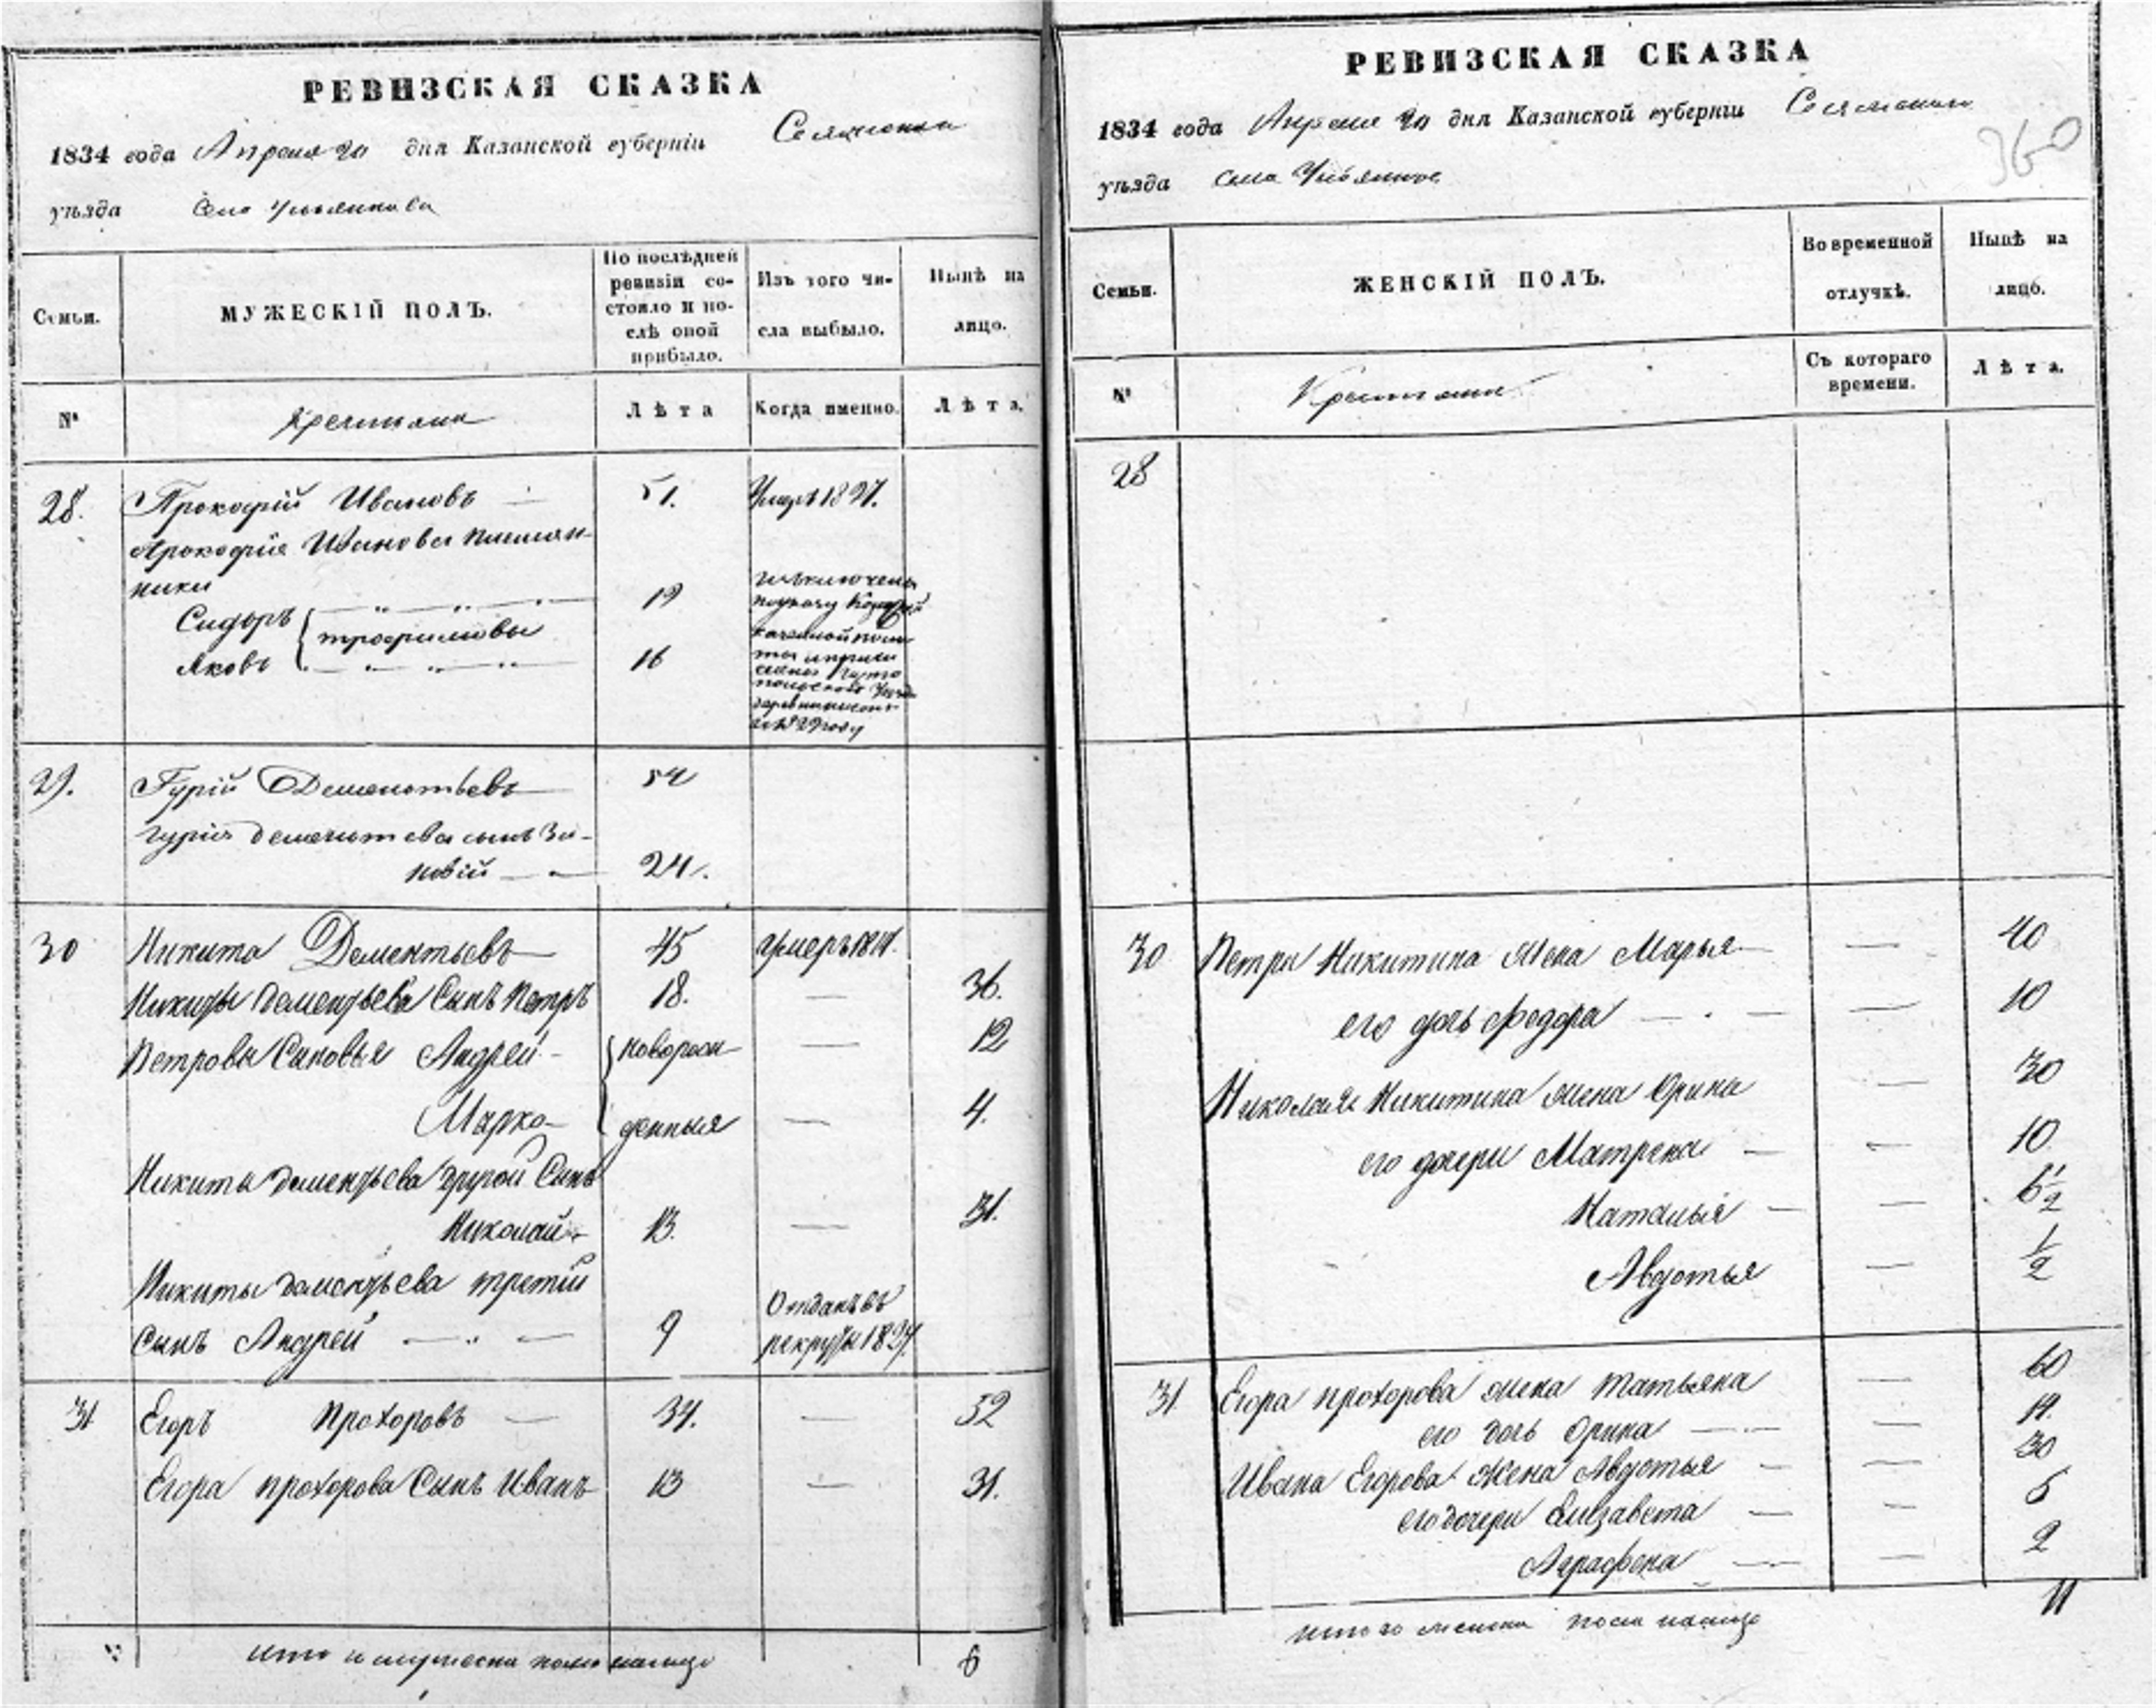 РЕВИЗСКАЯ СКАЗКА
1834 года Апреля 20 дня Казанской губерніи
уѣзда Села
Семьи.
МУЖЕСКІЙ ПОЛЪ.
По послѣдней ревизіи состояло и послѣ оной прибыло.
Изъ того числа выбыло.
Нынѣ на лицо.
№
Крестьяне
Лѣта
Когда именно.
Лѣта.
28. Прокофій Ивановъ 51. Умеръ 1827.
Прокофія Иванова племян-
ники
Сидоръ 19
Трофимовы
Яковъ 16
исключены
по указу
казенной пала-
ты
29. Гурій Дементьевъ 54
Гурія Дементьева сынъ Зи-
новій 24.
30 Никита Дементьевъ 45 умеръ
Никиты Дементьева Сынъ Петръ 18. — 36.
Петровы Сыновья Андрей новорож — 12
Марко денныя — 4.
Никиты Дементьева другой Сынъ
Николай 13. — 31.
Никиты Дементьева третій Отданъ въ
Сынъ Андрей 9 рекруты
31 Егоръ Прохоровъ 34. — 52
Егора Прохорова Сынъ Иванъ 13 — 31.
Итого мужеска пола налицо 6
РЕВИЗСКАЯ СКАЗКА
1834 года Апреля 20 дня Казанской губерніи
360
уѣзда села
Семьи.
ЖЕНСКІЙ ПОЛЪ.
Во временной отлучкѣ.
Нынѣ на лицо.
№
Крестьяне
Съ котораго времени.
Лѣта.
28
30 Петра Никитина Жена Марья — 40
его дочь Федора — 10
Николая Никитина жена Орина — 30
его дочери Матрена — 10
Наталья — 6½
Авдотья — ½
31 Егора Прохорова жена Татьяна — 60
его дочь Орина — 19.
Ивана Егорова Жена Авдотья — 30
его дочери Елизавета — 5
Аграфена — 2
Итого женска пола налицо 11